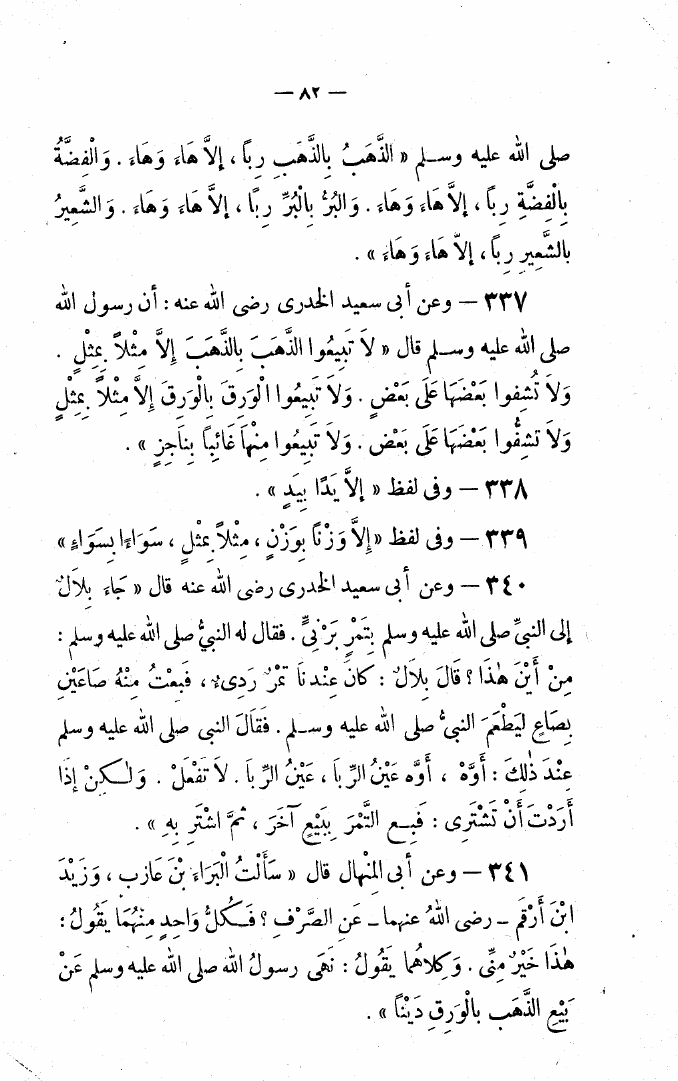 — ٨٢ —
صلى الله عليه وسلم « الذَّهَبُ بِالذَّهَبِ رِبًا، إلاَّ هَاءَ وَهَاءَ . وَالْفِضَّةُ
بِالْفِضَّةِ رِبًا، إلاَّ هَاءَ وَهَاءَ . وَالبُرُّ بِالْبُرِّ رِبًا، إلاَّ هَاءَ وَهَاءَ . وَالشَّعِيرُ
بالشَّعِيرِ رِبًا، إلاّ هَاءَ وَهَاءَ » .
٣٣٧ – وعن أبى سعيد الخدرى رضى الله عنه : أن رسول الله
صلى الله عليه وسلم قال « لاَ تَبِيعُوا الذَّهَبَ بِالذَّهَبَ إلاَّ مِثْلاً بِمِثْلٍ .
وَلاَ تُشِفوا بَعْضَهَا عَلَى بَعْضٍ . وَلاَ تَبِيعُوا الْوَرِقَ بِالْوَرِقَ إلاَّ مِثْلاً بِمِثْلٍ
وَلاَ تشِفُّوا بَعْضَهَا عَلَى بَعْض . وَلاَ تَبِيعُوا مِنْهَا غَائِبًا بِنَاجِزٍ » .
٣٣٨ – وفى لفظ « إلاَّ يَدًا بِيَدٍ » .
٣٣٩ – وفى لفظ « إلاَّ وَزْنًا بِوَزْنٍ ، مِثْلاً بِمثْلٍ ، سَوَاءًا بِسَوَاءٍ »
٣٤٠ – وعن أبى سعيد الخدرى رضى الله عنه قال « جَاءَ بِلاَلٌ
إلى النبىِّ صلى الله عليه وسلم بِتَمْرٍ بَرْنىٍّ . فقال له النبىُّ صلى الله عليه وسلم :
مِنْ أَيْنَ هٰذَا ؟ قَالَ بِلاَلٌ : كانَ عِنْدنَا تمْرٌ رَدِىءٌ ، فَبِعْتُ مِنْهُ صَاعَيْنِ
بِصَاعٍ لِيَطْعَمَ النبىُّ صلى الله عليه وسلم . فَقَالَ النبى صلى الله عليه وسلم
عِنْدَ ذٰلِكَ : أَوَّهْ ، أَوَّه عَيْنُ الرِّبَا ، عَيْنُ الرِّبَا . لاَ تَفْعَلْ . وَلٰكِنْ إذَا
أَرَدْتَ أَنْ تَشْتَرِى : فَبِع التَّمْرَ بِبَيْعٍ آخَرَ ، ثمَّ اشْتَرِ بِهِ » .
٣٤١ – وعن أبى المِنْهال قال « سَأَلْتُ الْبَرَاءَ بْنَ عَازِب ، وَزَيْدَ
ابْنَ أَرْقَم – رضى اللهُ عنهما – عَنِ الصَّرْفِ ؟ فَكُلُّ وَاحِدٍ مِنْهُمَا يَقُولُ :
هٰذَا خَيْرٌ مِنِّى . وَكِلاهُما يَقُولُ : نَهَى رسولُ الله صلى الله عليه وسلم عَنْ
بَيْعِ الذَّهَب بالْوَرِقِ دَيْنًا » .